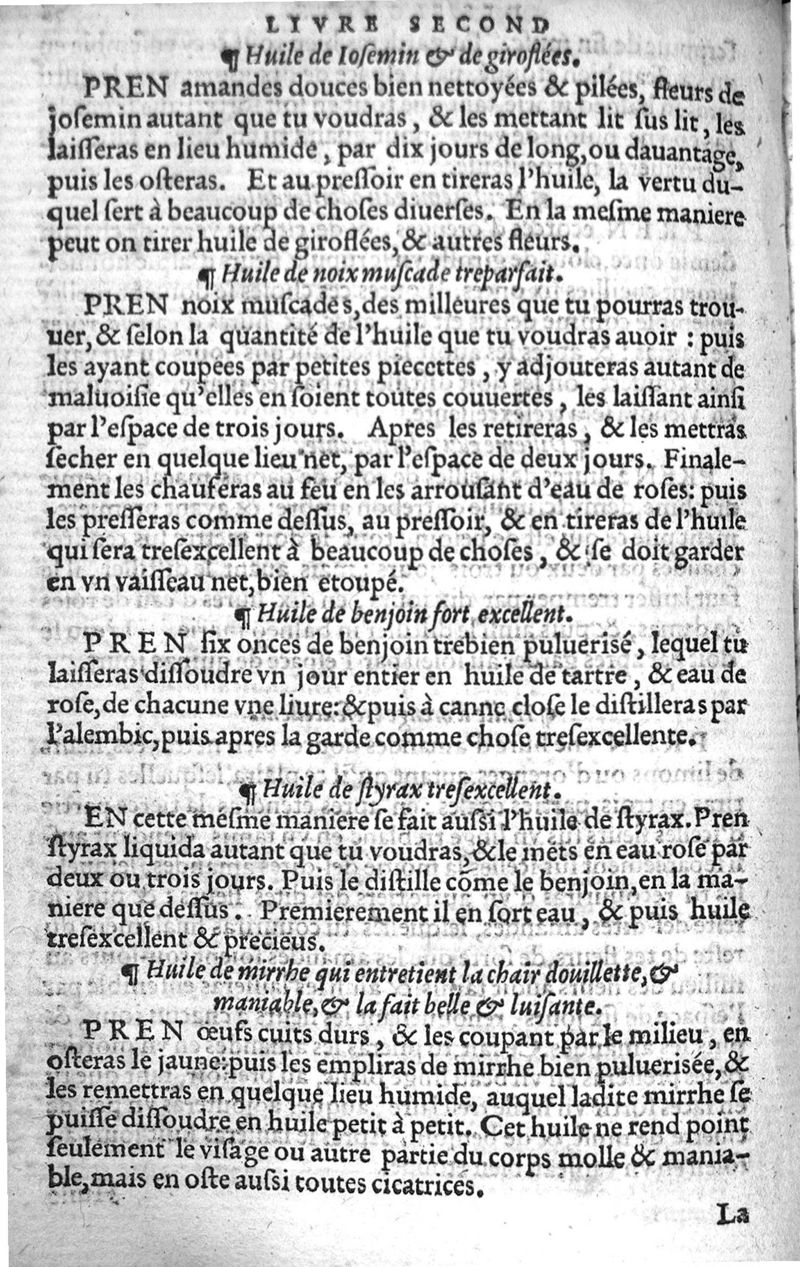 LIVRE SECOND
¶ Huile de Ioſemin & de giroflées.
PREN amandes douces bien nettoyées & pilées, fleurs de
joſemin autant que tu voudras, & les mettant lit ſus lit, les
laiſſeras en lieu humide, par dix jours de long, ou dauantáge,
puis les oſteras. Et au preſſoir en tireras l'huile, la vertu du-
quel ſert à beaucoup de choſes diuerſes. En la meſme maniere
peut on tirer huile de giroflées, & autres fleurs.
¶ Huile de noix muſcade treparfait.
PREN noix muſcades, des milleures que tu pourras trou-
uer, & ſelon la quantité de l'huile que tu voudras auoir : puis
les ayant coupées par petites piecettes, y adjouteras autant de
maluoiſie qu'elles en ſoient toutes couuertes, les laiſſant ainſi
par l'eſpace de trois jours. Apres les retireras, & les mettras
ſecher en quelque lieu net, par l'eſpace de deux jours. Finale-
ment les chauferas au feu en les arrouſant d'eau de roſes: puis
les preſſeras comme deſſus, au preſſoir, & en tireras de l'huile
qui ſera treſexcellent à beaucoup de choſes, & ſe doit garder
en vn vaiſſeau net, bien étoupé.
¶ Huile de benjoin fort excellent.
PREN ſix onces de benjoin trebien puluerisé, lequel tu
laiſſeras diſſoudre vn jour entier en huile de tartre, & eau de
roſe, de chacune vne liure: & puis à canne cloſe le diſtilleras par
l'alembic, puis apres la garde comme choſe treſexcellente.
¶ Huile de ſtyrax treſexcellent.
EN cette méſme maniere ſe fait auſſi l'huile de ſtyrax. Pren
ſtyrax liquida autant que tu voudras, & le mets en eau roſe par
deux ou trois jours. Puis le diſtille cõme le benjoin, en la ma-
niere que deſſus. Premierement il en ſort eau, & puis huile
treſexcellent & précieus.
¶ Huile de mirrhe qui entretient la chair douillette, &
maniable, & la fait belle & luiſante.
PREN œufs cuits durs, & les coupant par le milieu, en
oſteras le jaune: puis les empliras de mirrhe bien puluerisée, &
les remettras en quelque lieu humide, auquel ladite mirrhe ſe
puiſſe diſſoudre en huile petit à petit. Cet huile ne rend point
ſeulement le viſage ou autre partie du corps molle & mania-
ble, mais en oſte auſſi toutes cicatrices.
La